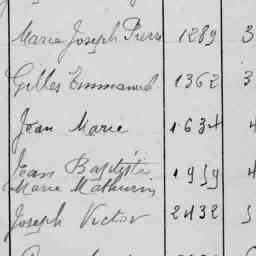 Marie Joseph Pierre 1289 3
Gilles Emmanuel 1362 3
Jean Marie 1634 4
Jean Baptiste 1959 4
Marie Mathurin
Joseph Victor 2432 5